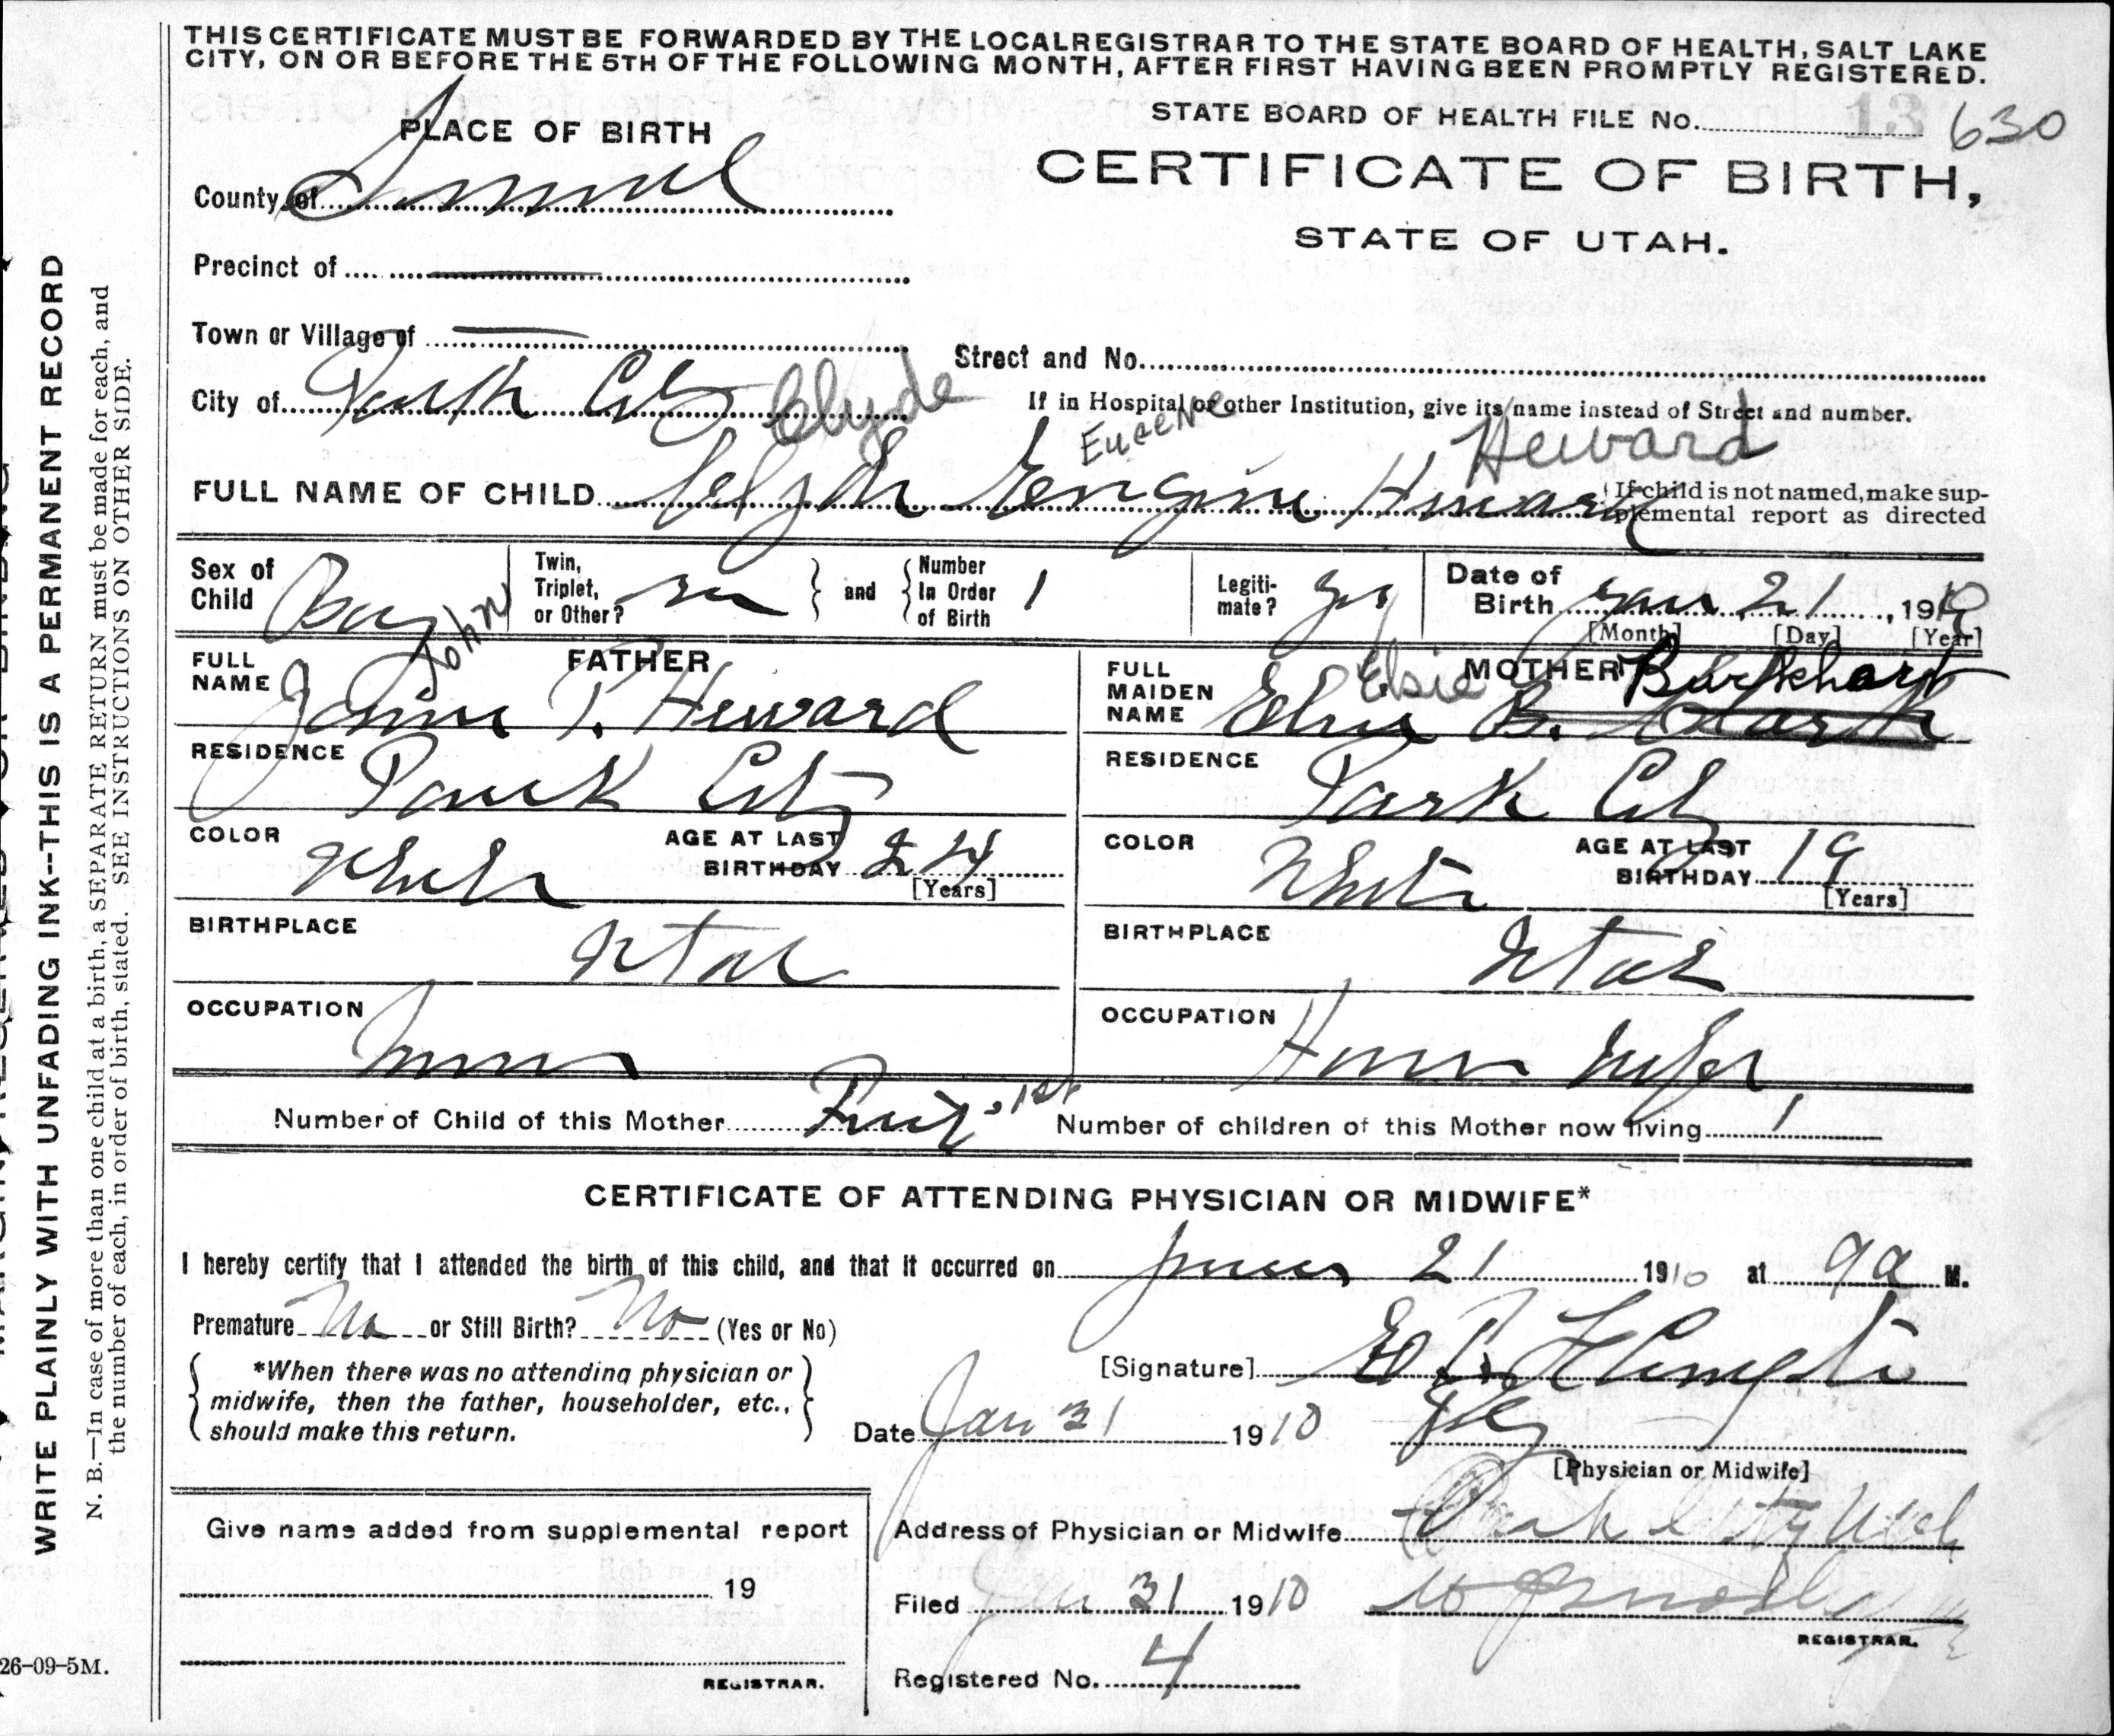 THIS CERTIFICATE MUST BE FORWARDED BY THE LOCAL REGISTRAR TO THE STATE BOARD OF HEALTH, SALT LAKE
CITY, ON OR BEFORE THE 5TH OF THE FOLLOWING MONTH, AFTER FIRST HAVING BEEN PROMPTLY REGISTERED.
STATE BOARD OF HEALTH FILE No. 13 630
PLACE OF BIRTH
CERTIFICATE OF BIRTH,
County of Summit
STATE OF UTAH.
Precinct of
Town or Village of
Street and No.
City of Park City
If in Hospital or other Institution, give its name instead of Street and number.
Clyde Eugene Heward
FULL NAME OF CHILD Clyde Hewará
If child is not named, make sup-
plemental report as directed
Sex of Child Boy
Twin, Triplet, or Other? no and Number In Order of Birth 1
Legiti-mate? yes
Date of Birth Jan 21, 1910
[Month] [Day] [Year]
FATHER
MOTHER
FULL NAME John T. Heward
FULL MAIDEN NAME Elsie B. Clark Burkhart
RESIDENCE Park City
RESIDENCE Park City
COLOR White AGE AT LAST BIRTHDAY 24 [Years]
COLOR White AGE AT LAST BIRTHDAY 19 [Years]
BIRTHPLACE Utah
BIRTHPLACE Utah
OCCUPATION Miner
OCCUPATION House Wife
Number of Child of this Mother 1st Number of children of this Mother now living 1
CERTIFICATE OF ATTENDING PHYSICIAN OR MIDWIFE*
I hereby certify that I attended the birth of this child, and that it occurred on 21 1910 at 9 a M.
Premature No or Still Birth? No (Yes or No)
*When there was no attending physician or
midwife, then the father, householder, etc.,
should make this return.
[Signature]
Date Jan 31 1910
[Physician or Midwife]
Give name added from supplemental report
Address of Physician or Midwife Park City Utah
19
Filed Jan 31 1910
REGISTRAR.
REGISTRAR.
Registered No. 4
WRITE PLAINLY WITH UNFADING INK--THIS IS A PERMANENT RECORD
N. B.—In case of more than one child at a birth, a SEPARATE RETURN must be made for each, and
the number of each, in order of birth, stated. SEE INSTRUCTIONS ON OTHER SIDE.
26-09-5M.